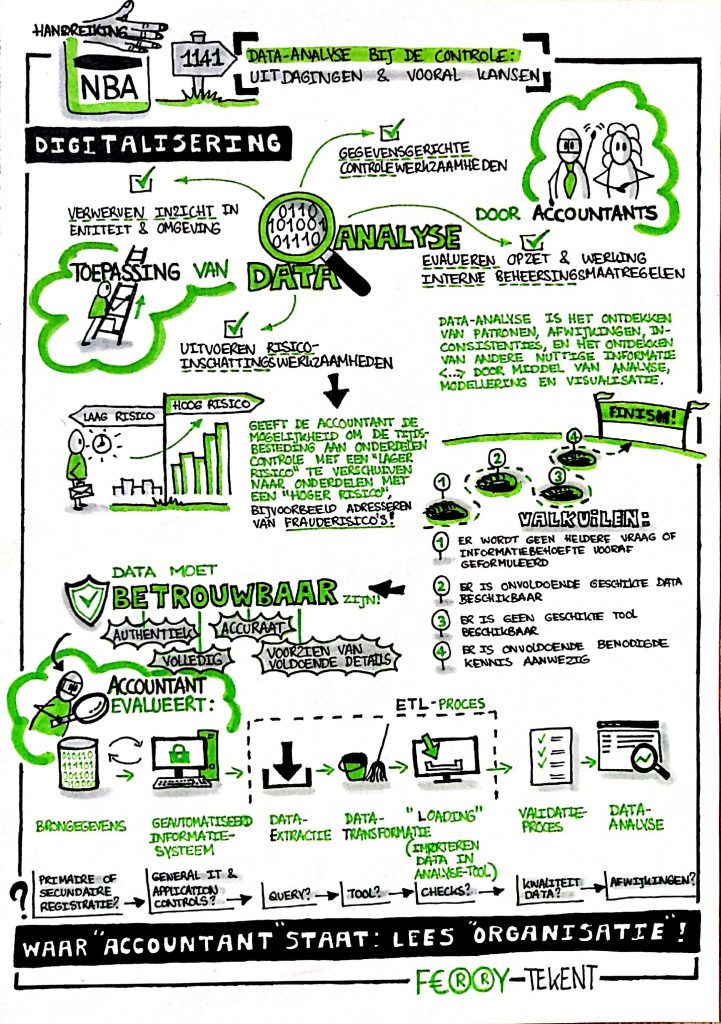 HANDREIKING
NBA
1141
DATA-ANALYSE BIJ DE CONTROLE:
UITDAGINGEN & VOORAL KANSEN
DIGITALISERING
GEGEVENSGERICHTE
CONTROLEWERKZAAMHEDEN
DOOR ACCOUNTANTS
VERWERVEN INZICHT IN
ENTITEIT & OMGEVING
0110
101001
01110
TOEPASSING VAN
DATA
ANALYSE
EVALUEREN OPZET & WERKING
INTERNE BEHEERSINGSMAATREGELEN
UITVOEREN RISICO-
INSCHATTINGSWERKZAAMHEDEN
DATA-ANALYSE IS HET ONTDEKKEN
VAN PATRONEN, AFWIJKINGEN, IN-
CONSISTENTIES, EN HET ONTDEKKEN
VAN ANDERE NUTTIGE INFORMATIE
<...> DOOR MIDDEL VAN ANALYSE,
MODELLERING EN VISUALISATIE.
LAAG RISICO
HOOG RISICO
GEEFT DE ACCOUNTANT DE
MOGELIJKHEID OM DE TIJDS-
BESTEDING AAN ONDERDELEN
CONTROLE MET EEN "LAGER
RISICO" TE VERSCHUIVEN
NAAR ONDERDELEN MET
EEN "HOGER RISICO",
BIJVOORBEELD ADRESSEREN
VAN FRAUDERISICO'S!
FINISH!
1
2
3
4
VALKUILEN:
1 ER WORDT GEEN HELDERE VRAAG OF
INFORMATIEBEHOEFTE VOORAF
GEFORMULEERD
2 ER IS ONVOLDOENDE GESCHIKTE DATA
BESCHIKBAAR
3 ER IS GEEN GESCHIKTE TOOL
BESCHIKBAAR
4 ER IS ONVOLDOENDE BENODIGDE
KENNIS AANWEZIG
DATA MOET
BETROUWBAAR ZIJN!
AUTHENTIEK
ACCURAAT
VOLLEDIG
VOORZIEN VAN
VOLDOENDE DETAILS
ACCOUNTANT
EVALUEERT:
ETL-PROCES
BRONGEGEVENS
GEAUTOMATISEERD
INFORMATIE-
SYSTEEM
DATA-
EXTRACTIE
DATA-
TRANSFORMATIE
"LOADING"
(IMPORTEREN
DATA IN
ANALYSE-TOOL)
VALIDATIE-
PROCES
DATA-
ANALYSE
?
PRIMAIRE OF
SECUNDAIRE
REGISTRATIE?
GENERAL IT &
APPLICATION
CONTROLS?
QUERY?
TOOL?
CHECKS?
KWALITEIT
DATA?
AFWIJKINGEN?
WAAR "ACCOUNTANT" STAAT: LEES "ORGANISATIE"!
F€®®Y-TEKENT